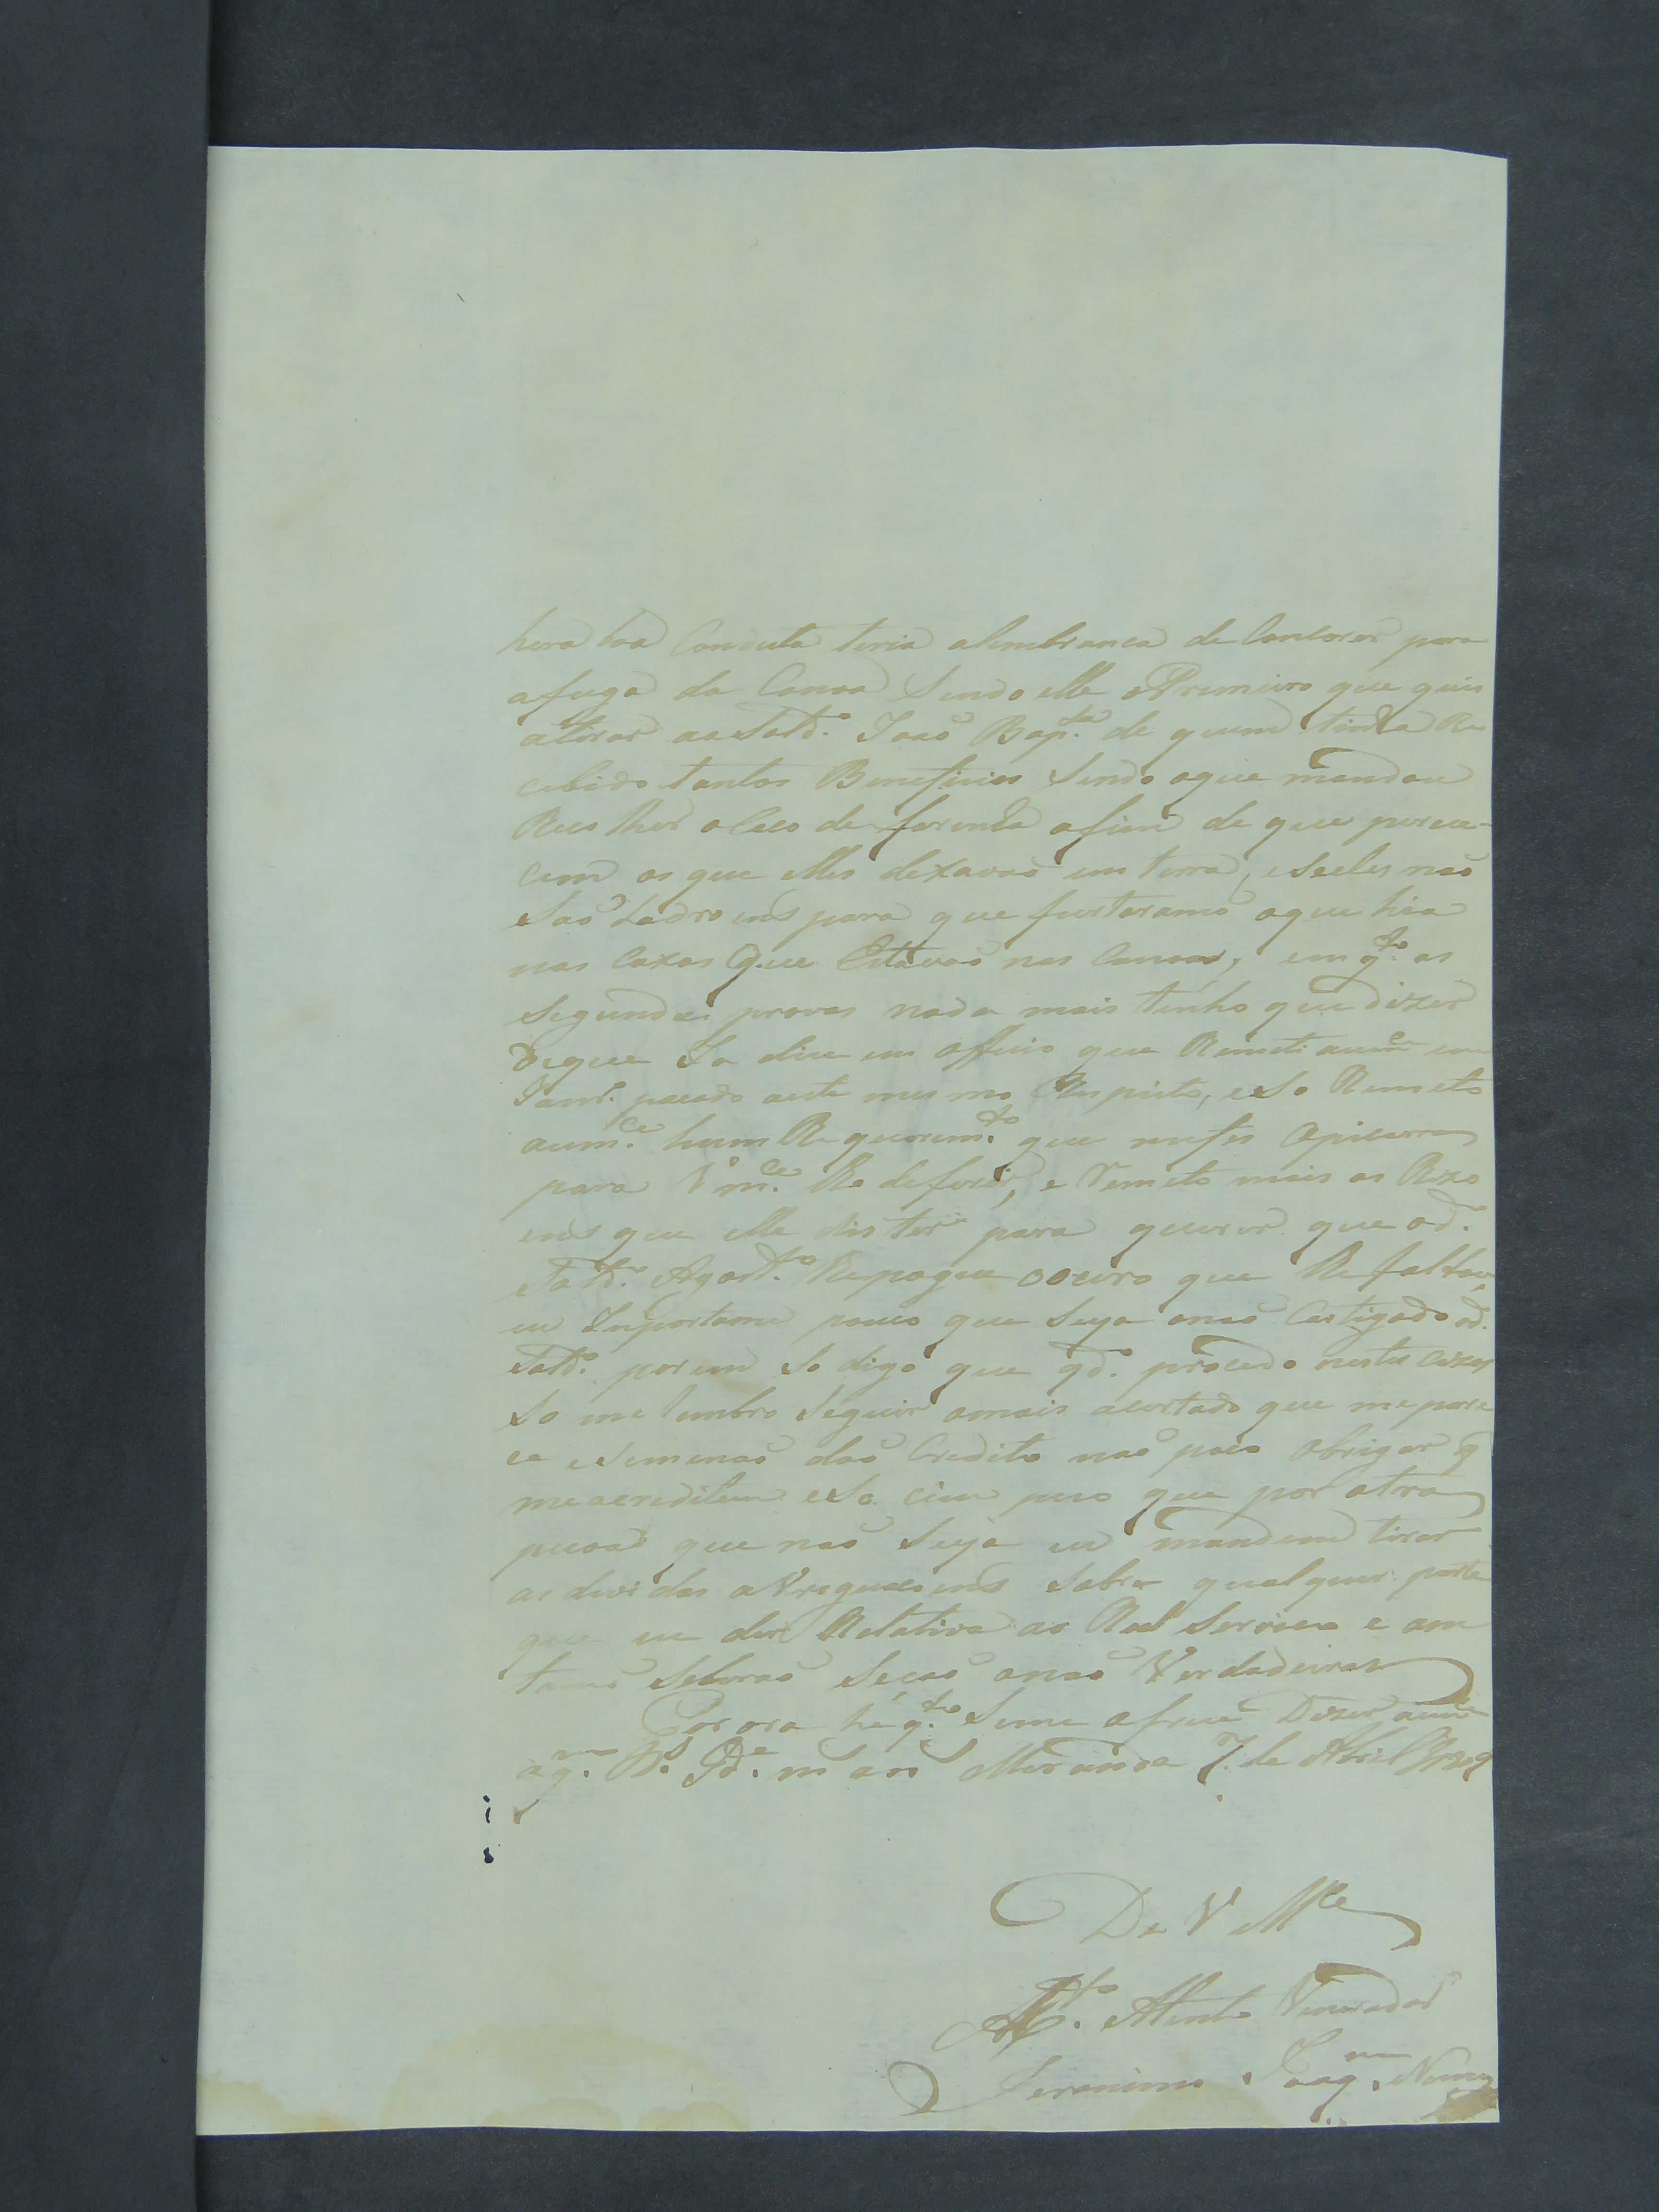 hera boa Conduta teria alembranca de Concorer para
afuga da Canoa Sendo elle oPrimeiro que quis
atirar ao Sold.o Joaõ Bap.ta de quem tinha Re
cebido tantos Beneficios Sendo oque mandou
Recolher oCaco de farinha afim de que perece-
cem os que elles dexavaõ em terra, eSeeles naõ
Saõ Ladroens para que furtaramõ oque hia
nas Caxas Que Estavaõ nas Canoas, em q.to as
Segundas provas nada mais tenho que dizer
doque Ja dice em officio que Remeti aum.ce em
Janr.o pacado aeste mesmo Respeito, eSo Remeto
aum.ce hum Requerim.to que mefes
para Vm.ce lhe deferir, e Remeto mais as Rezo
ens que elle dis ter para querer que od.o
Sold.o Agost.o lhe pague oouro que lhe faltou,
eu Importame pouco que Seja onaõ Castigado od.o
Sold.o porem So digo que qd.o procedo nestas Cozas
So me lembro Seguir omais acertado que mepare
ce eSemenaõ daõ Credito naõ poço obrigar q
meacreditem eSo cim peço que por otra
peçoa que naõ Seja eu mandem tirar
as devidas aVriguacoens Sobre qualquer parte
que eu der Relativa ao Real Servico e am
taõ Seberaõ Secaõ onaõ Verdadeiras
Por ora hé q.to Seme ofrece Dizer aum.ce
aq.m D.s G.de m an.s Miranda 7. de Abril 1809
De V M.ce
M.to Atento Venerador
Jeronimo Joaq.m Nunes